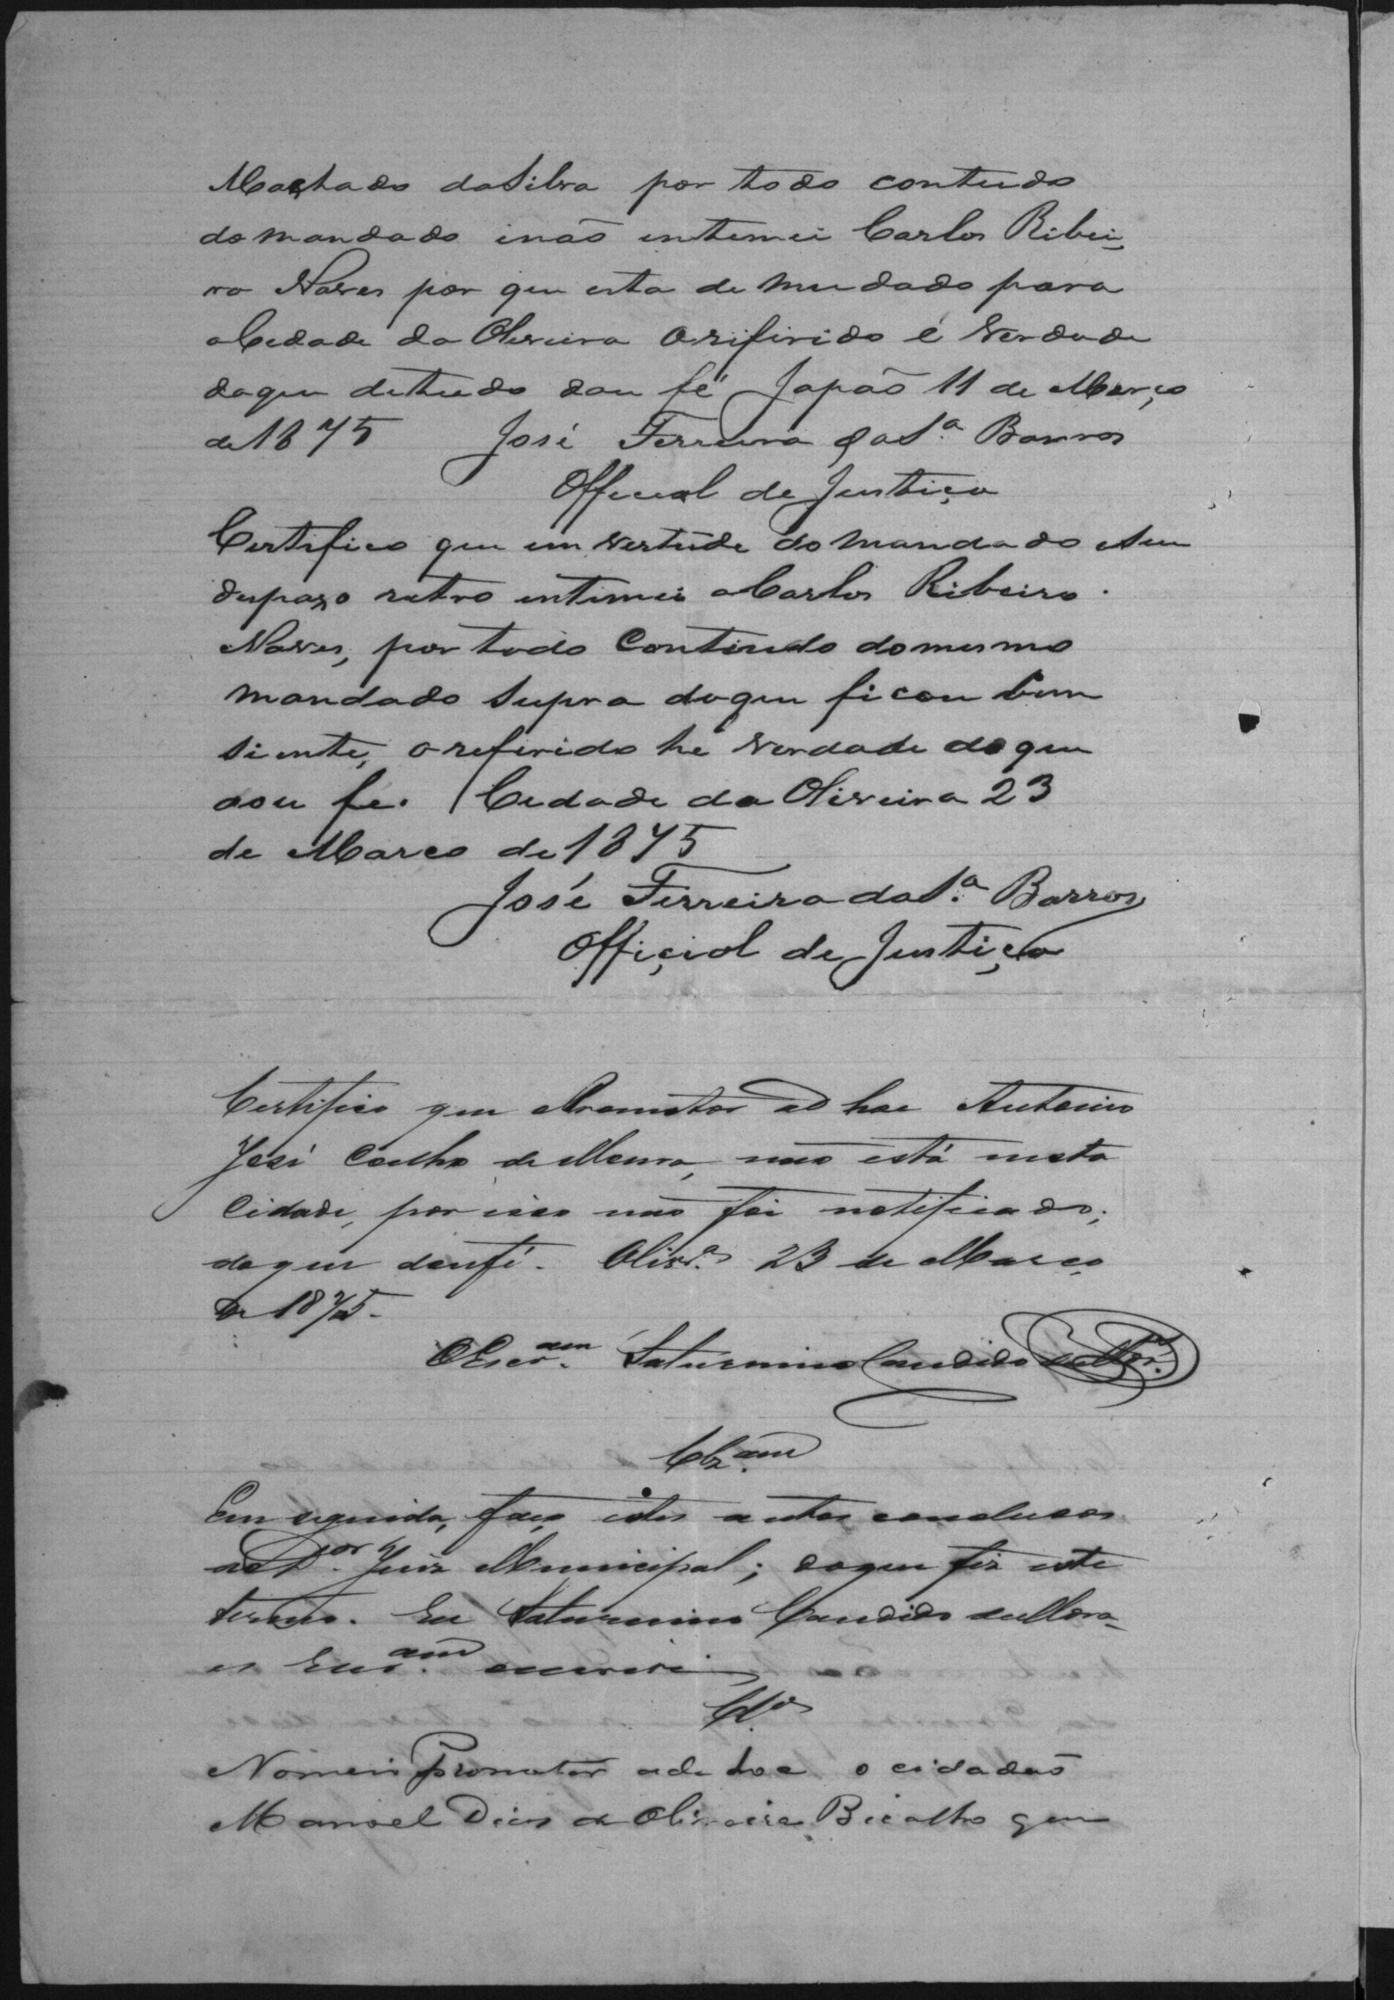 Machado da Silva por todo contiudo
do mandado inão entemei Carlos Ribei-
ro Naves por que esta de mudado para
a Cedade da Oliveira Orifirido é verdade
doque detudo dou fé Japão 11 de Março
de 1875 José Ferreira da S.ª Barros
Official de Justiça
Certifico que em vertude do mandado e seu
dupaxo retro entimei a Carlos Ribeiro
Naves, por todo Contiudo do mesmo
mandado supra doque ficou bem
siente, o refirido hé verdade do que
dou fé. Cedade da Oliveira 23
de Março de 1875
José Ferreira da S.ª Barros
Offiçial de Justiça
Certifico que o Promotor ad hoc Antonio
José Coelho de Moura, não está nesta
Cidade, por isso não foi notificado;
do que dou fé. Olivr.ª 23 de Março
de 1875.
O Escr.am Saturnino Candido de Mor.
Clz.am
Em seguida, faço estes autos conclusos
ao D.or Juiz Municipal; do que fiz este
termo. Eu Saturnino Candido de Mora-
es Escr.am escrevi
Cl.os
Nomeio Promotor ade hoc o cidadão
Manoel Dias de Oliveira Bicalho que